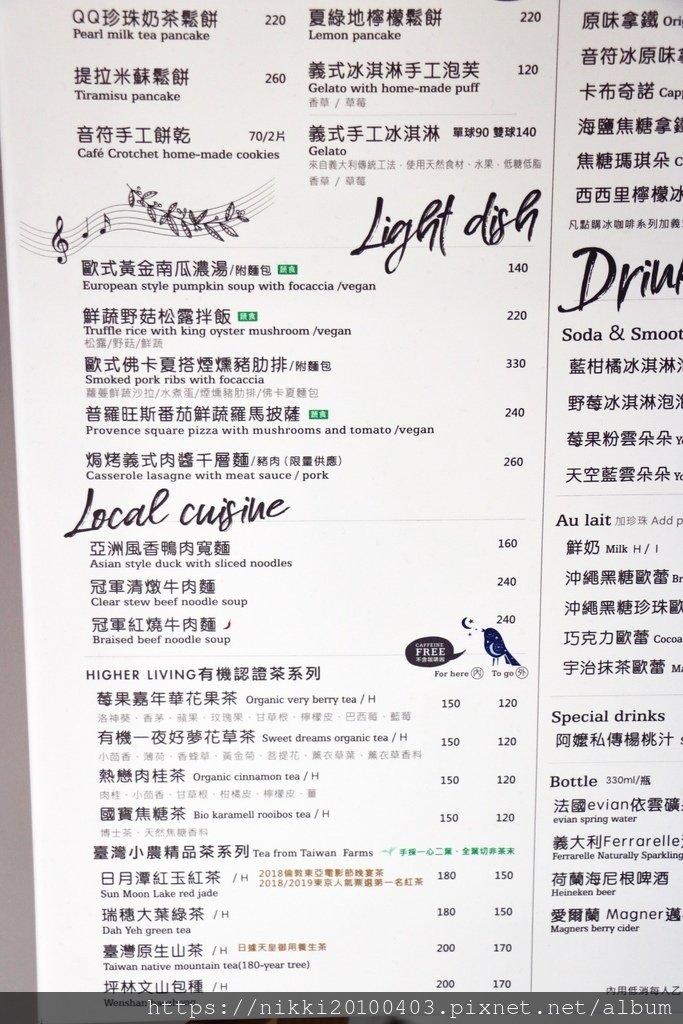 QQ珍珠奶茶鬆餅 220
Pearl milk tea pancake
夏綠地檸檬鬆餅 220
Lemon pancake
提拉米蘇鬆餅 260
Tiramisu pancake
義式冰淇淋手工泡芙 120
Gelato with home-made puff
香草 / 草莓
音符手工餅乾 70/2片
Café Crotchet home-made cookies
義式手工冰淇淋 單球90 雙球140
Gelato
來自義大利傳統工法，使用天然食材、水果，低糖低脂
香草 / 草莓
Light dish
歐式黃金南瓜濃湯/附麵包 蔬食 140
European style pumpkin soup with focaccia /vegan
鮮蔬野菇松露拌飯 蔬食 220
Truffle rice with king oyster mushroom /vegan
松露/野菇/鮮蔬
歐式佛卡夏搭煙燻豬肋排/附麵包 330
Smoked pork ribs with focaccia
蘿蔓鮮蔬沙拉/水煮蛋/煙燻豬肋排/佛卡夏麵包
普羅旺斯番茄鮮蔬羅馬披薩 蔬食 240
Provence square pizza with mushrooms and tomato /vegan
焗烤義式肉醬千層麵/豬肉（限量供應） 260
Casserole lasagne with meat sauce / pork
Local cuisine
亞洲風香鴨肉寬麵 160
Asian style duck with sliced noodles
冠軍清燉牛肉麵 240
Clear stew beef noodle soup
冠軍紅燒牛肉麵 240
Braised beef noodle soup
CAFFEINE
FREE
不含咖啡因
HIGHER LIVING有機認證茶系列
For here 內 To go 外
莓果嘉年華花果茶 Organic very berry tea / H 150 120
洛神葵、香茅、蘋果、玫瑰果、甘草根、檸檬皮、巴西莓、藍莓
有機一夜好夢花草茶 Sweet dreams organic tea / H 150 120
小茴香、薄荷、香蜂草、黃金菊、菩提花、薰衣草葉、薰衣草香料
熱戀肉桂茶 Organic cinnamon tea / H 150 120
肉桂、小茴香、甘草根、柑橘皮、檸檬皮、薑
國寶焦糖茶 Bio karamell rooibos tea / H 150 120
博士茶、天然焦糖香料
臺灣小農精品茶系列 Tea from Taiwan Farms 手採一心二葉、全葉切非茶末
日月潭紅玉紅茶 / H 2018倫敦東亞電影節晚宴茶 180 150
2018/2019東京人氣票選第一名紅茶
Sun Moon Lake red jade
瑞穗大葉綠茶 / H 180 150
Dah Yeh green tea
臺灣原生山茶 / H 日據天皇御用養生茶 200 170
Taiwan native mountain tea(180-year tree)
坪林文山包種 / H 200 170
Wenshan
原味拿鐵
音符冰原味
卡布奇諾
海鹽焦糖拿鐵
焦糖瑪琪朵
西西里檸檬冰
凡點購冰咖啡系列加義
Soda & Smoot
藍柑橘冰淇淋
野莓冰淇淋泡
莓果粉雲朵朵
天空藍雲朵朵
Au lait 加珍珠 Add p
鮮奶 Milk H / I
沖繩黑糖歐蕾
沖繩黑糖珍珠歐
巧克力歐蕾 Cocoa
宇治抹茶歐蕾
Special drinks
阿嬤私傳楊桃汁
Bottle 330ml/瓶
法國evian依雲礦
evian spring water
義大利Ferrarelle
Ferrarelle Naturally Sparkling
荷蘭海尼根啤酒
Heineken beer
愛爾蘭 Magner
Magners berry cider
內用低消每人乙
https://nikki20100403.pixnet.net/album